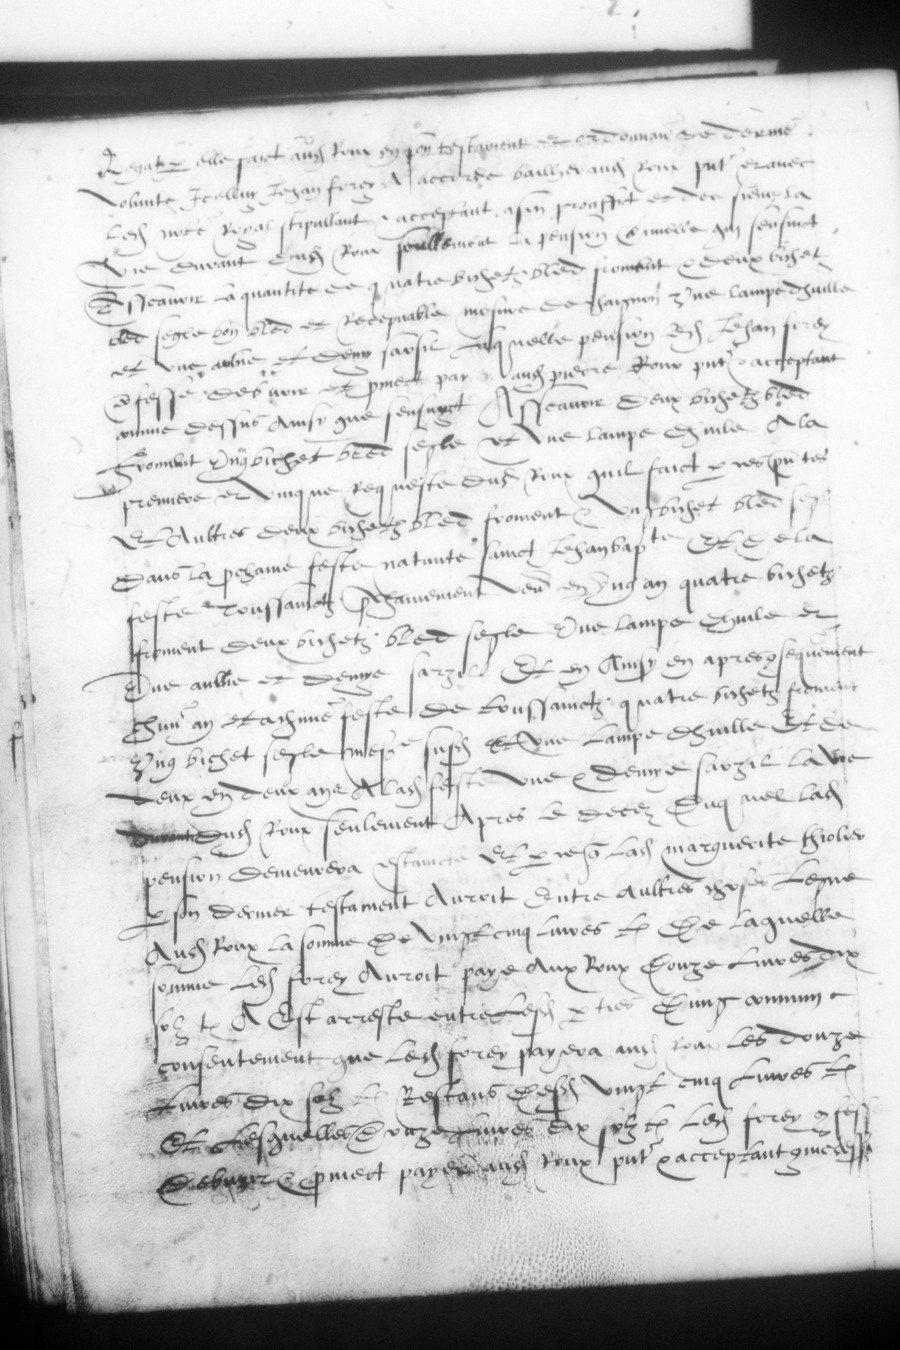 Legat p elle faict aud Roux en son testament et ordonnance de derniere
volunte Icelluy Jehan forey A accorde bailher aud Roux pnt et avec
Led notre Royal stipullant & acceptant a son prouffit et de sieur la
vie durant dud Roux seullement la pension annuelle que sensuict
Asscavoir la quantite de quatre bichetz bled froment & deux bichetz
bled segle bon bled et Recepvable mesure de vne lampe dhuille
et vne aulne et demy sarsil Laquelle pension led Jehan forey
confesse debvoir et pmect payer aud pierre Roux pnt & acceptant
comme dessus Ainsy que sensuyct Asscavoir deux bichetz bled
froment vng bichet bled segle et vne lampe dhuile A la
premiere et vnique Requeste dud Roux quil faict p ces pntes
Et Aultres deux bichetz bled froment & vng bichet bled segle
Dans la pchaine feste nativite sainct Jehan baptte Et de la
feste Toussainctz pchainement venant en vng an quatre bichetz
froment deux bichetz bled segle vne lampe dhuile et
vne aulne et demye sarzil Et en Ainsy en apres consequemment
chun an et a chune feste de toussainctz quatre bichetz froment
vng bichet segle mesure susd Et vne lampe dhuille Et de
deux en deux ans A lad feste vne & demye sarzil la vie
durant dud Roux seulement Apres le decez duquel lad
pension demeurera estaincte Et p ce que lad marguerite thiolier
p son dernier testament Auroit Entre aultres choses Legue
Aud Roux la somme de vingt cinq livres tz De laquelle
somme led forey Auroit paye Aux Roux Douze Livres dix
solz tz A Est arreste entre lesd pties Dung commung
consentement que led forey payera aud Roux les douze
Livres dix solz tz Restans desd vingt cinq livres tz
Et Lesquelles Douze Livres dix solz tz Led forey confesse
Debvoir & pmect payer aud Roux pnt & acceptant comme dessus